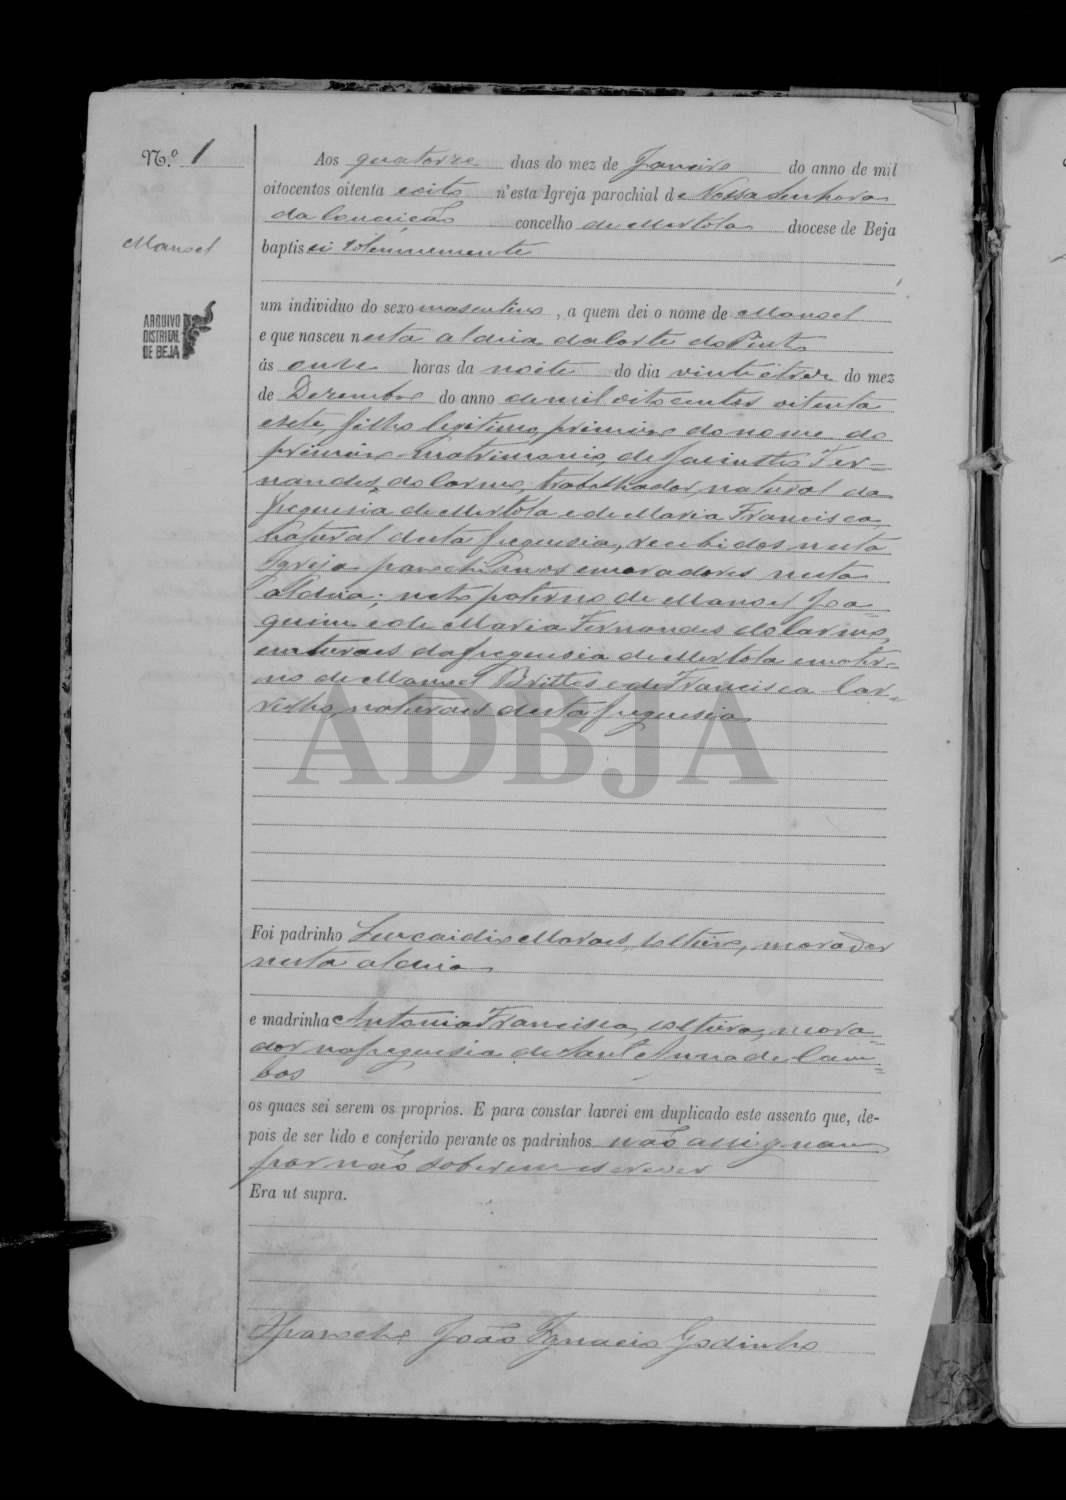 N.º 1
Aos quatorze dias do mez de Janeiro do anno de mil
oitocentos oitenta e oito n'esta Igreja parochial de Nossa Senhora
da Conceição concelho de Mertola diocese de Beja
Manoel
baptisei solemnemente
um individuo do sexo masculino, a quem dei o nome de Manoel
ARQUIVO
DISTRITAL
DE BEJA
e que nasceu nesta aldeia da Corte do Pinto
ás onze horas da noite do dia vinte e trez do mez
de Dezembro do anno de mil oitocentos oitenta
e sete, filho legitimo, primeiro do nome do
primeiro matrimonio, de Jacintho Fer=
nandes do Carmo, trabalhador, natural da
freguesia de Mertola e de Maria Francisca,
natural desta freguesia, recebidos nesta
Igreja parochianos e moradores nesta
Aldeia; neto paterno de Manoel Joa=
quim e de Maria Fernandes do Carmo,
naturaes da freguesia de Mertola e mater=
no de Manoel Brittes e de Francisca Car=
rilho, naturaes desta freguesia
ADBJA
Foi padrinho Moraes, solteiro, morador
nesta aldeia
e madrinha Antonia Francisca, solteira, mora=
dor na freguesia de Sant'Anna de Cam=
bas
os quaes sei serem os proprios. E para constar lavrei em duplicado este assento que, de-
pois de ser lido e conferido perante os padrinhos não assignam
por não saberem escrever
Era ut supra.
O parocho João Ignacio Godinho